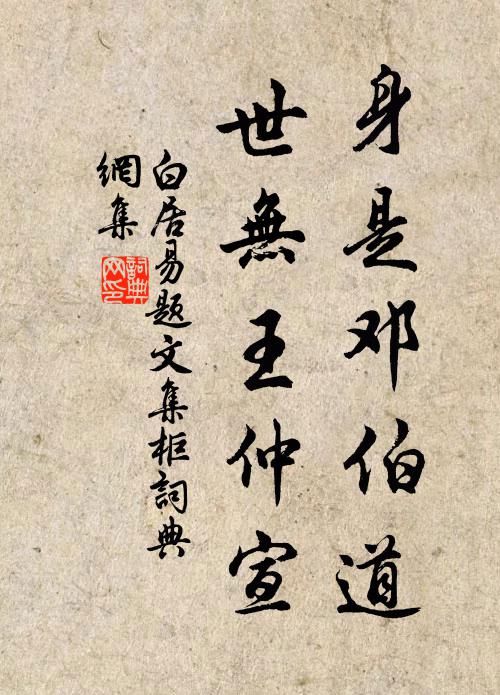 身是邓伯道
世無王仲宣
白居易题文集柜詞典
網集
詞典
网印